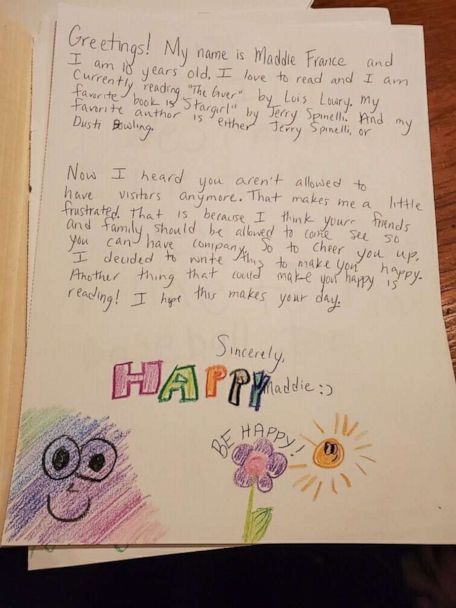 Greetings! My name is Maddie France and
I am 10 years old. I love to read and I am
Currently reading "The Giver" by Lois Loury. My
favorite book is "Stargirl" by Jerry Spinelli. And my
favorite author is either Jerry Spinelli, or
Dusti Bowling.
Now I heard you aren't allowed to
have visitors anymore. That makes me a little
frustrated. That is because I think your friends
and family should be allowed to come see so
you can have company. So to cheer you up,
I decided to write this to make you happy.
Another thing that could make you happy is
reading! I hope this makes your day.
Sincerely,
Maddie :)
HAPPY
BE HAPPY!